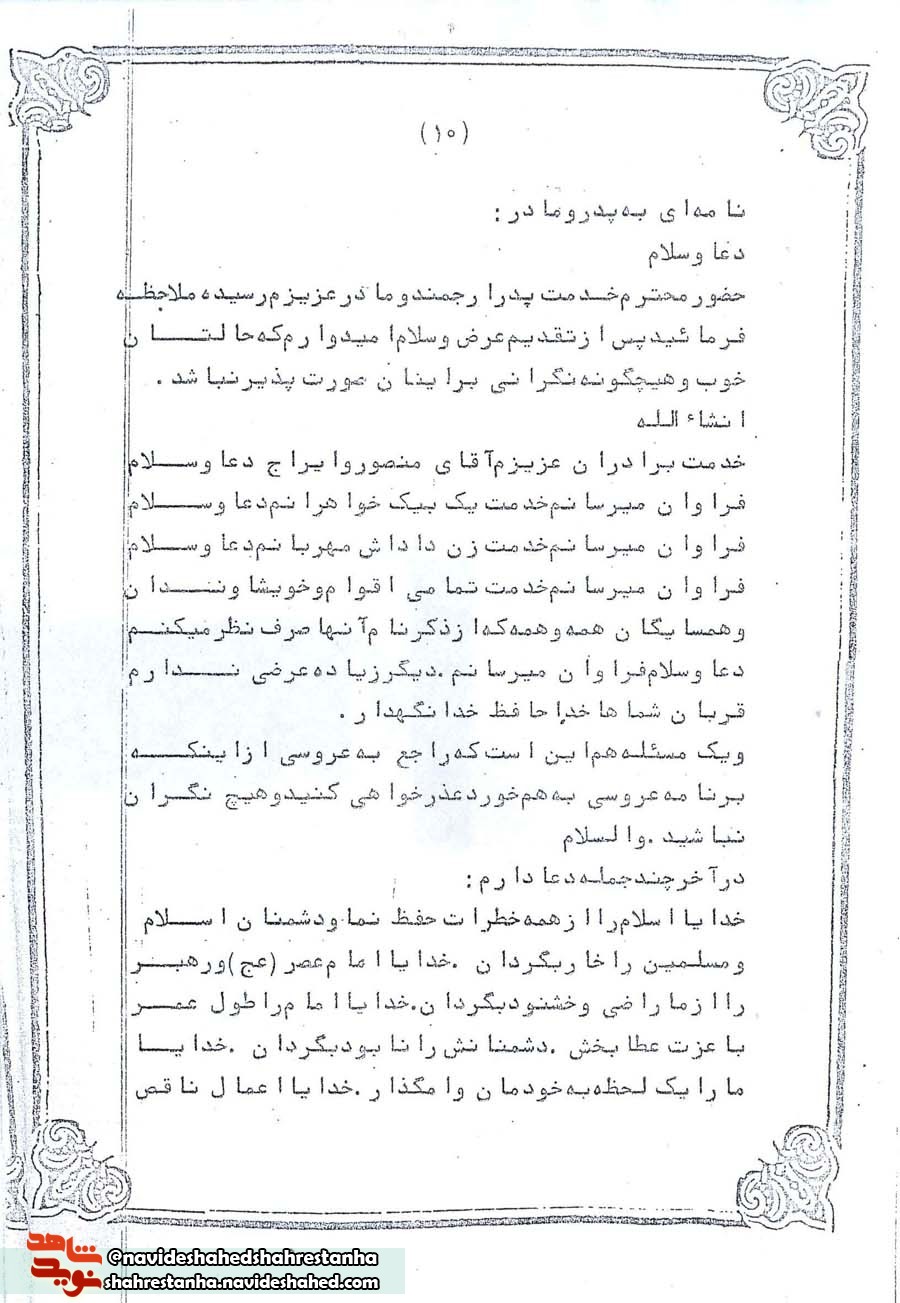 (۱۰)
نامه‌ای به پدر و مادر :
دعا و سلام
حضور محترم خدمت پدر ارجمند و مادر عزیزم رسیده ملاحظه
فرمائید پس از تقدیم عرض و سلام امیدوارم که حالتان
خوب و هیچگونه نگرانی برایتان صورت پذیر نباشد .
انشاء الله
خدمت برادران عزیزم آقای منصور و ایراج دعا و سلام
فراوان میرسانم خدمت یک بیک خواهرانم دعا و سلام
فراوان میرسانم خدمت زن داداش مهربانم دعا و سلام
فراوان میرسانم خدمت تمامی اقوام و خویشاوندان
و همسایگان همه و همه که از ذکر نام آنها صرف نظر میکنم
دعا و سلام فراوان میرسانم . دیگر زیاده عرضی ندارم
قربان شماها خدا حافظ خدا نگهدار .
و یک مسئله هم این است که راجع به عروسی از اینکه
برنامه عروسی به هم خورد عذر خواهی کنید و هیچ نگران
نباشید . والسلام
در آخر چند جمله دعا دارم :
خدایا اسلام را از همه خطرات حفظ نما و دشمنان اسلام
و مسلمین را خار بگردان . خدایا امام عصر (عج) و رهبر
را از ما راضی و خشنود بگردان . خدایا امام را طول عمر
با عزت عطا بخش . دشمنانش را نابود بگردان . خدایا
ما را یک لحظه به خودمان وا مگذار . خدایا اعمال ناقص
نوید شاهد
@navideshahedshahrestanha
shahrestanha.navideshahed.com